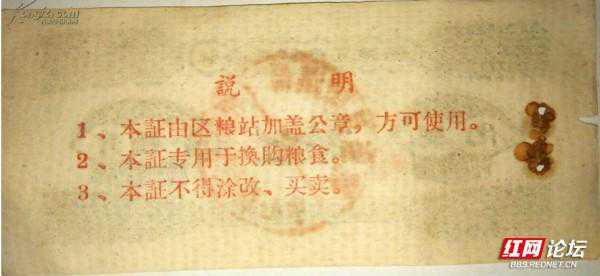 説 明
1、本証由区粮站加盖公章，方可使用。
2、本証专用于換购粮食。
3、本証不得涂改、买卖。
红网论坛
BBS.REDNET.CN